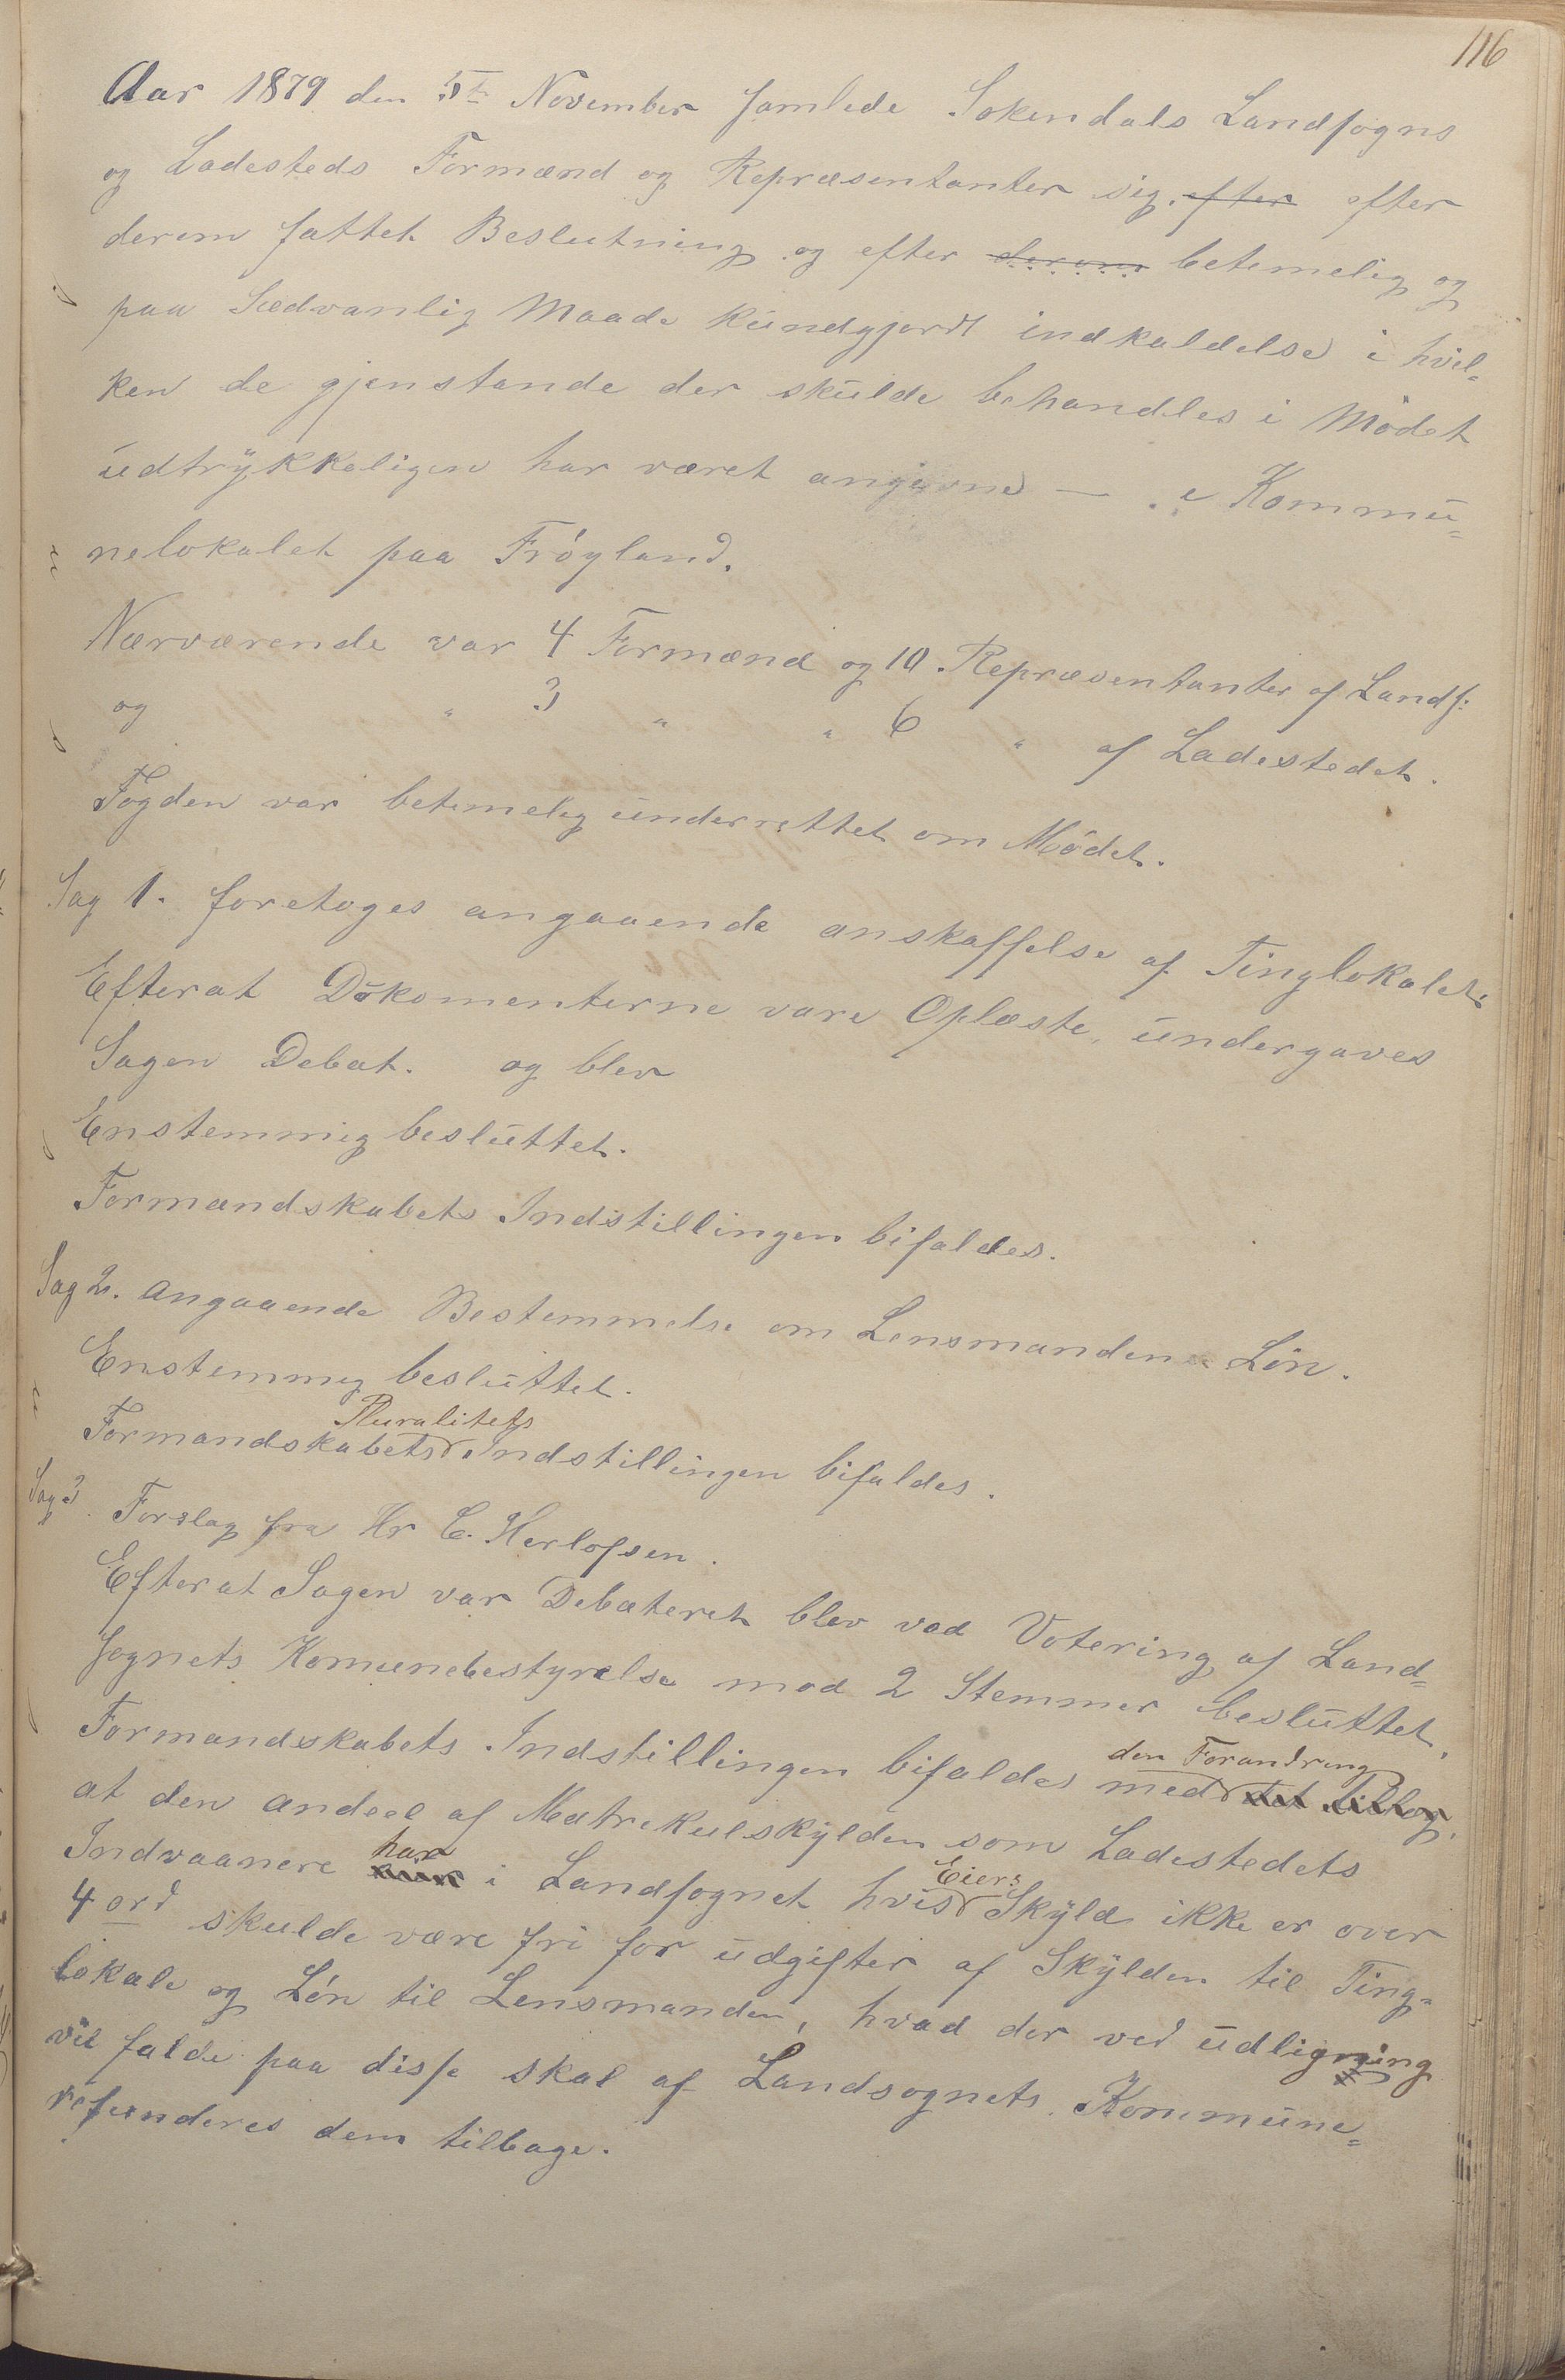 116
Aar 1879 den 5te November samlede Sokendals Landsogns
og Ladesteds Formænd og Repræsentanter sig, efter efter
derom fattet Beslutning og efter derom betimelig og
paa Sædvanlig Maade Kundgjordt indkaldelse i hvil-
ken de gjenstande der skulde behandles i Mødet
udtrykkeligen har været angivne — i Kommu=
nelokalet paa Frøyland.
Nærværende var 4 Formænd og 10 Repræsentanter af Lands:
og " 3 " " 6 " af Ladestedet.
Fogden var betimelig underrettet om Mødet.
Sag 1. foretoges angaaende anskaffelse af Tinglokalet:
Efterat Dokomenterne vare Oplæste, undergaves
Sagen Debat. og blev
Enstemmig besluttet.
Formandskabets Indstillingen bifaldes.
Sag 2. angaaende Bestemmelse om Lensmandens Løn.
Enstemmig besluttet.
Pluralitets
Formandskabets Indstillingen bifaldes.
Sag 3. Forslag fra Hr C. Herlofsen.
Efterat Sagen var Debateret blev ved Votering af Land=
sognets Komunebestyrelse mod 2 Stemmer besluttet,
den Forandring
Formandskabets Indstillingen bifaldes med det tillæg,
at den andeel af Matrikulskylden som Ladestedets
har Eiers
Indvaanere i Landsognet hvis Skyld ikke er over
4 ord skulde være fri for udgifter af Skylden til Ting-
lokale og Løn til Lensmanden, hvad der ved udligning
vil falde paa disse skal af Landsognets Kommune=
refunderes dem tilbage.